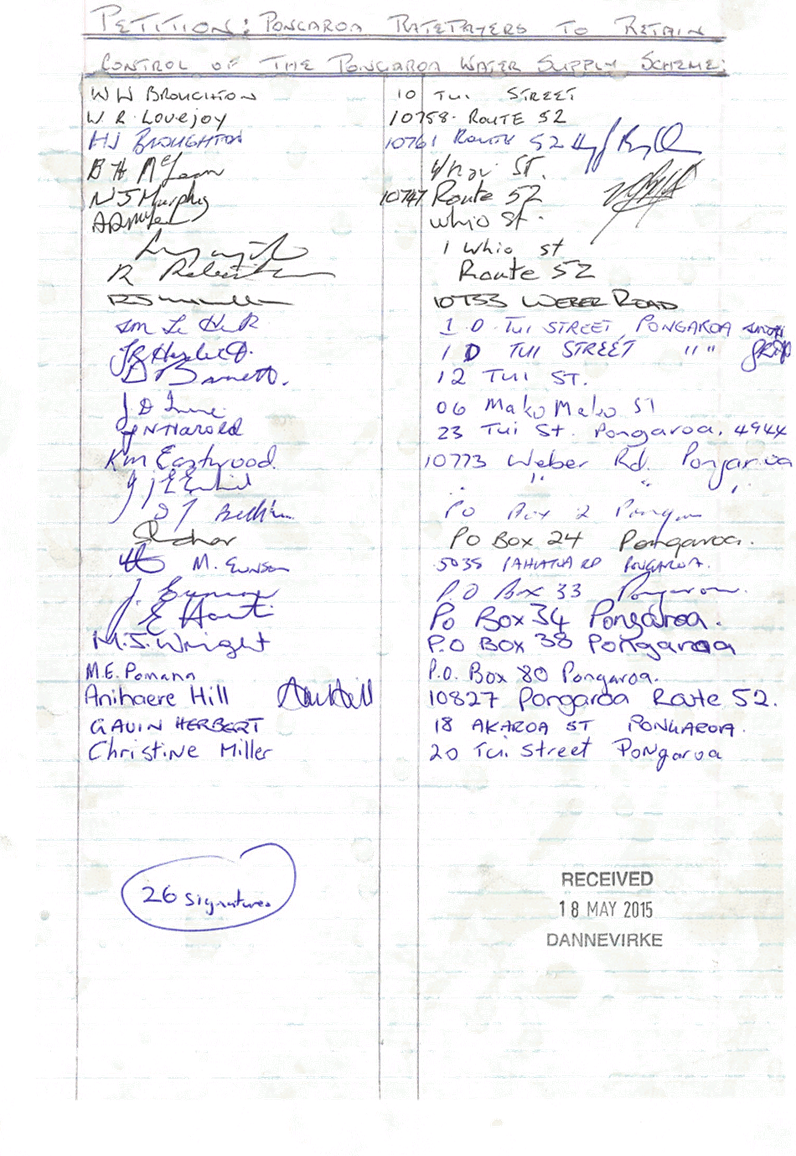 PETITION: PONGAROA RATEPAYERS TO RETAIN
CONTROL OF THE PONGAROA WATER SUPPLY SCHEME:
W W BROUGHTON 10 TUI STREET
W R Lovejoy 10758 ROUTE 52
HJ BROUGHTON 10761 ROUTE 52
B H McLean ST.
N J Murphy 10747 Route 52
Whio St.
1 Whio St
R Route 52
10753 WEBER ROAD
10 TUI STREET, PONGAROA
10 TUI STREET " "
D Barnett. 12 TUI ST.
J D 06 Mako Mako St
J N Harold 23 Tui St. Pongaroa. 4944
Km Eastwood. 10773 Weber Rd. Pongaroa
" " "
PO Box 2 Pongaroa
PO Box 24 Pongaroa.
M. Ewnson 5035 PAHIATUA RD PONGAROA.
P.O Box 33 Pongaroa.
PO Box 34 Pongaroa.
M.J. Wright P.O BOX 38 Pongaroa
M.E. Pomana P.O. Box 80 Pongaroa.
Anihaere Hill 10827 Pongaroa Route 52.
GAVIN HERBERT 18 AKAROA ST PONGAROA.
Christine Miller 20 Tui Street Pongaroa
26 signatures
RECEIVED
18 MAY 2015
DANNEVIRKE